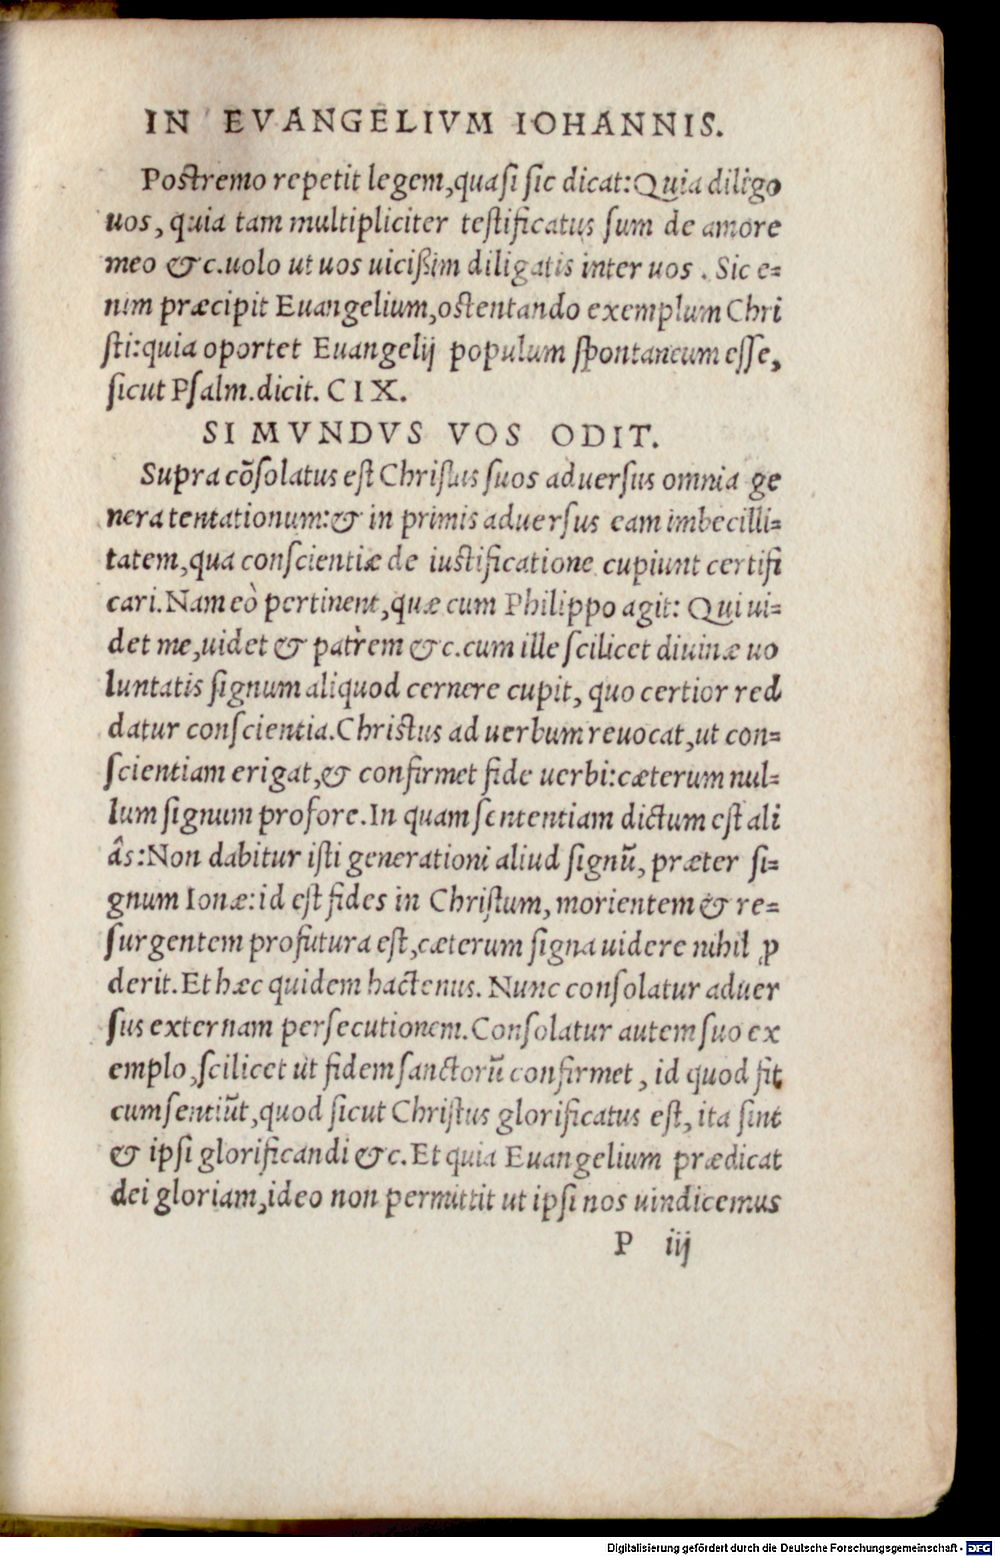 IN EVANGELIVM IOHANNIS.
Postremo repetit legem, quasi sic dicat: Quia diligo
uos, quia tam multipliciter testificatus sum de amore
meo &c. uolo ut uos uicißim diligatis inter uos. Sic e=
nim præcipit Euangelium, ostentando exemplum Chri
sti: quia oportet Euangelij populum spontaneum esse,
sicut Psalm. dicit. CIX.
SI MVNDVS VOS ODIT.
Supra cõsolatus est Christus suos aduersus omnia ge
nera tentationum: & in primis aduersus eam imbecilli=
tatem, qua conscientiæ de iustificatione cupiunt certifi
cari. Nam eò pertinent, quæ cum Philippo agit: Qui ui=
det me, uidet & patrem &c. cum ille scilicet diuinæ uo
luntatis signum aliquod cernere cupit, quo certior red
datur conscientia. Christus ad uerbum reuocat, ut con=
scientiam erigat, & confirmet fide uerbi: cæterum nul=
lum signum profore. In quam sententiam dictum est ali
âs: Non dabitur isti generationi aliud signũ, præter si=
gnum Ionæ: id est fides in Christum, morientem & re=
surgentem profutura est, cæterum signa uidere nihil ꝓ
derit. Et hæc quidem hactenus. Nunc consolatur aduer
sus externam persecutionem. Consolatur autem suo ex
emplo, scilicet ut fidem sanctorũ confirmet, id quod fit
cum sentiũt, quod sicut Christus glorificatus est, ita sint
& ipsi glorificandi &c. Et quia Euangelium prædicat
dei gloriam, ideo non permittit ut ipsi nos uindicemus
P iij
Digitalisierung gefördert durch die Deutsche Forschungsgemeinschaft - DFG